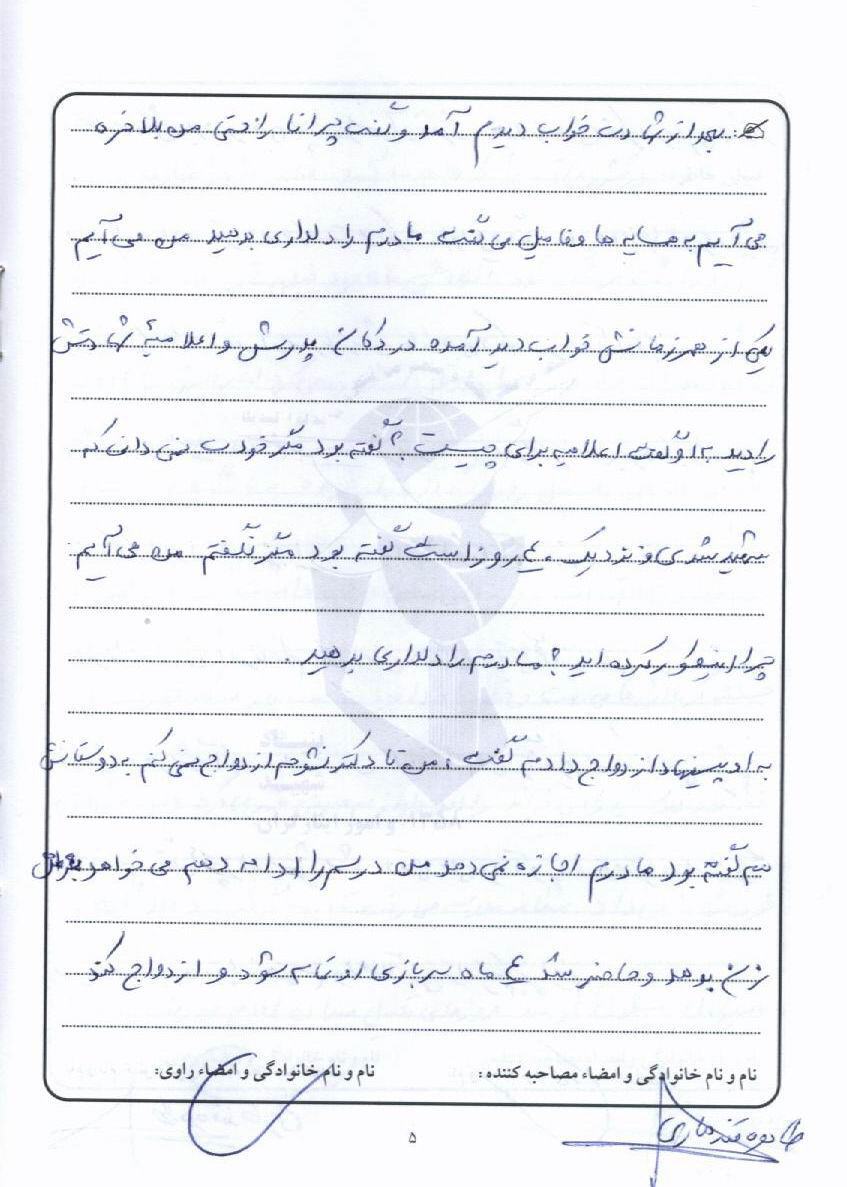 بعد از شهادت خواب دیدم آمد و گفت چرا ناراحتی من بلاخره
می آیم به همسایه ها و فامیل می گفت مادرم را دلداری بدهید من می آیم
یکی از همرزمانش خواب دید آمده در دکان پدرش و اعلامیه شهادتش
را دید به او گفت اعلامیه برای چیست؟ گفته بود مگر خودت نمی دانی که
شهید شدی و نزدیک ۴۰ روز است گفته بود مگر نگفتم من می آیم
چرا اینطور کرده اید؟ مادرم را دلداری بدهید.
به او پیشنهاد ازدواج دادم گفت: من تا دکتر نشوم ازدواج نمی کنم به دوستانش
هم گفته بود مادرم اجازه نمی دهد من درسم را ادامه دهم می خواهد برایم
زن بدهد و حاضر شد ۴ ماه سربازی او تمام شود و ازدواج کند
نام و نام خانوادگی و امضاء مصاحبه کننده: نام و نام خانوادگی و امضاء راوی:
۵